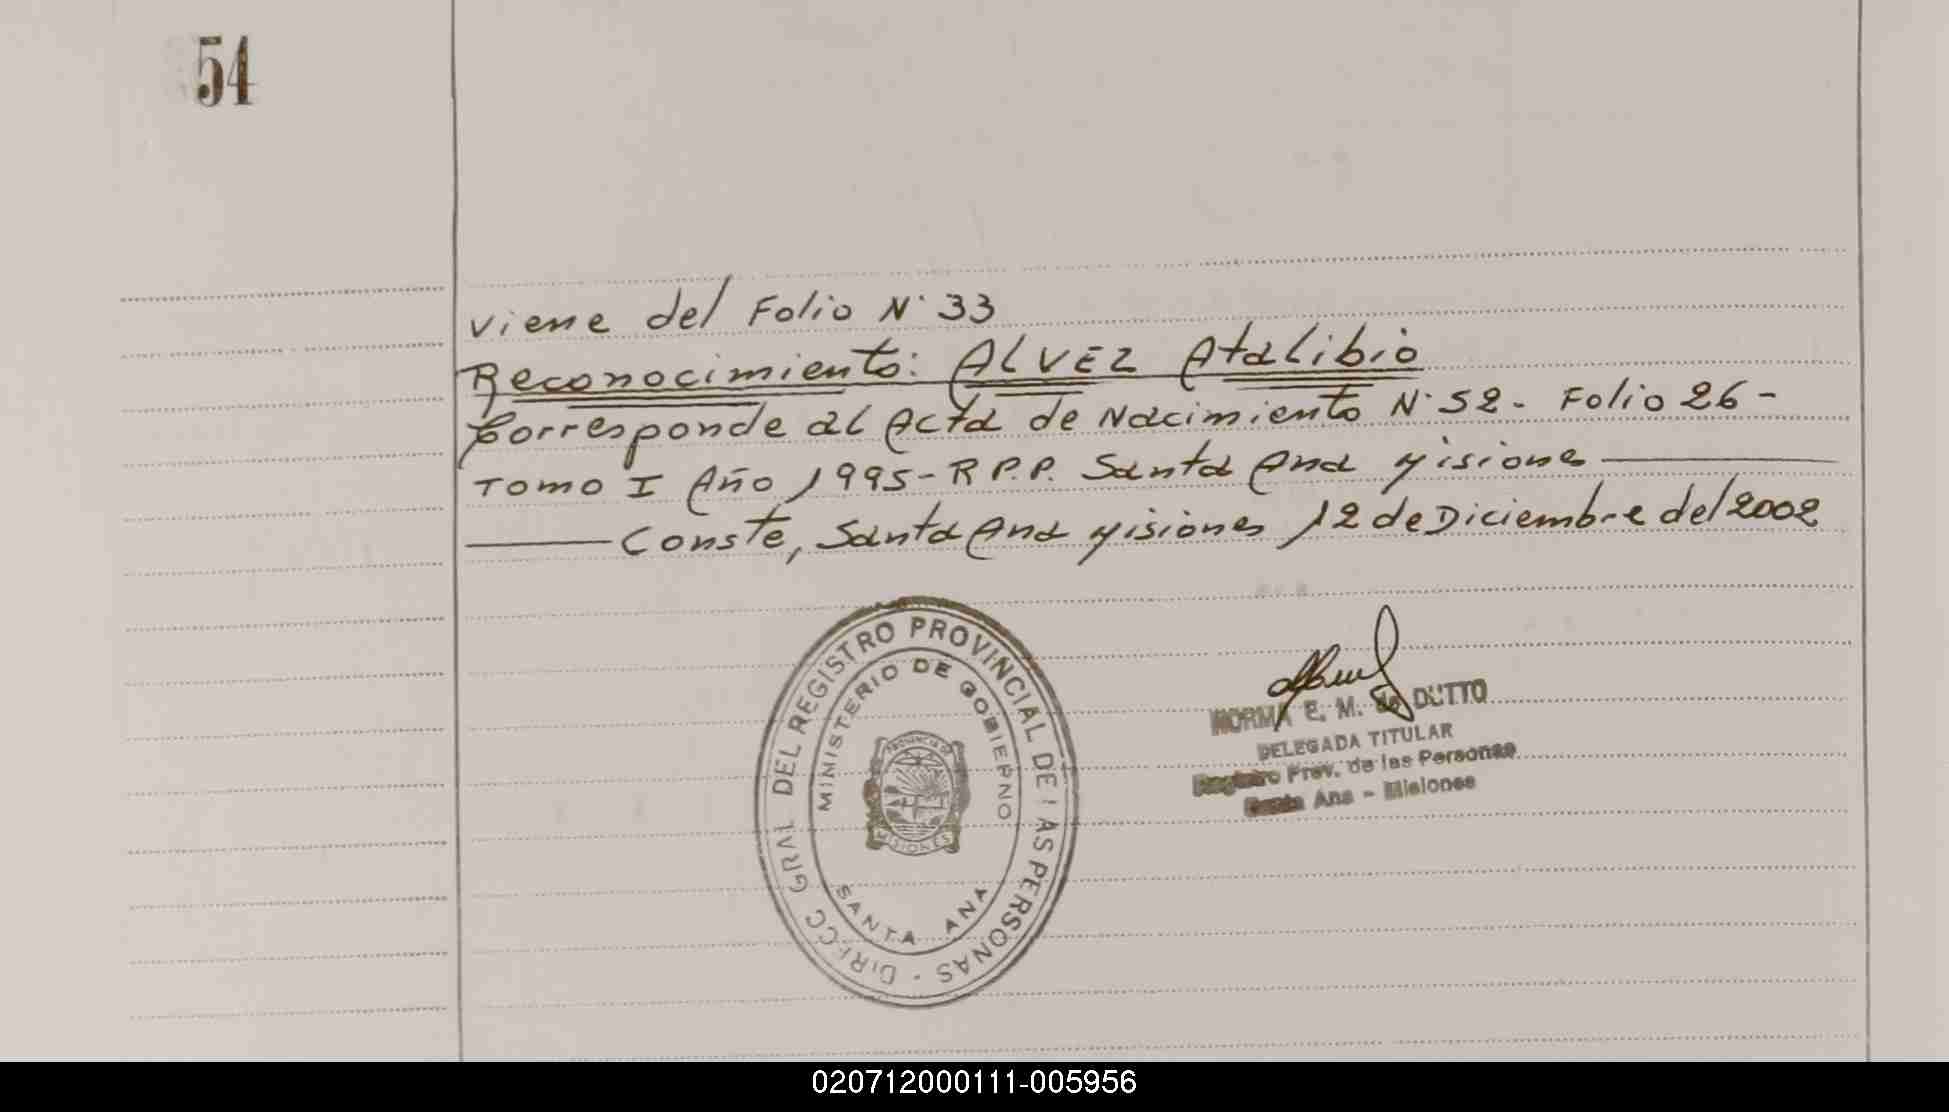 54
Viene del Folio N° 33
Reconocimiento: ALVEZ Atalibio
Corresponde al Acta de Nacimiento N° 52 - Folio 26 -
Tomo I Año 1995 - R P.P. Santa Ana Misiones
Conste, Santa Ana Misiones 12 de Diciembre del 2002
DIRECC GRAL DEL REGISTRO PROVINCIAL DE LAS PERSONAS -
MINISTERIO DE GOBIERNO
PROVINCIA DE
MISIONES
SANTA ANA
NORMA E. M. de DUTTO
DELEGADA TITULAR
Registro Prov. de las Personas
Santa Ana - Misiones
020712000111-005956